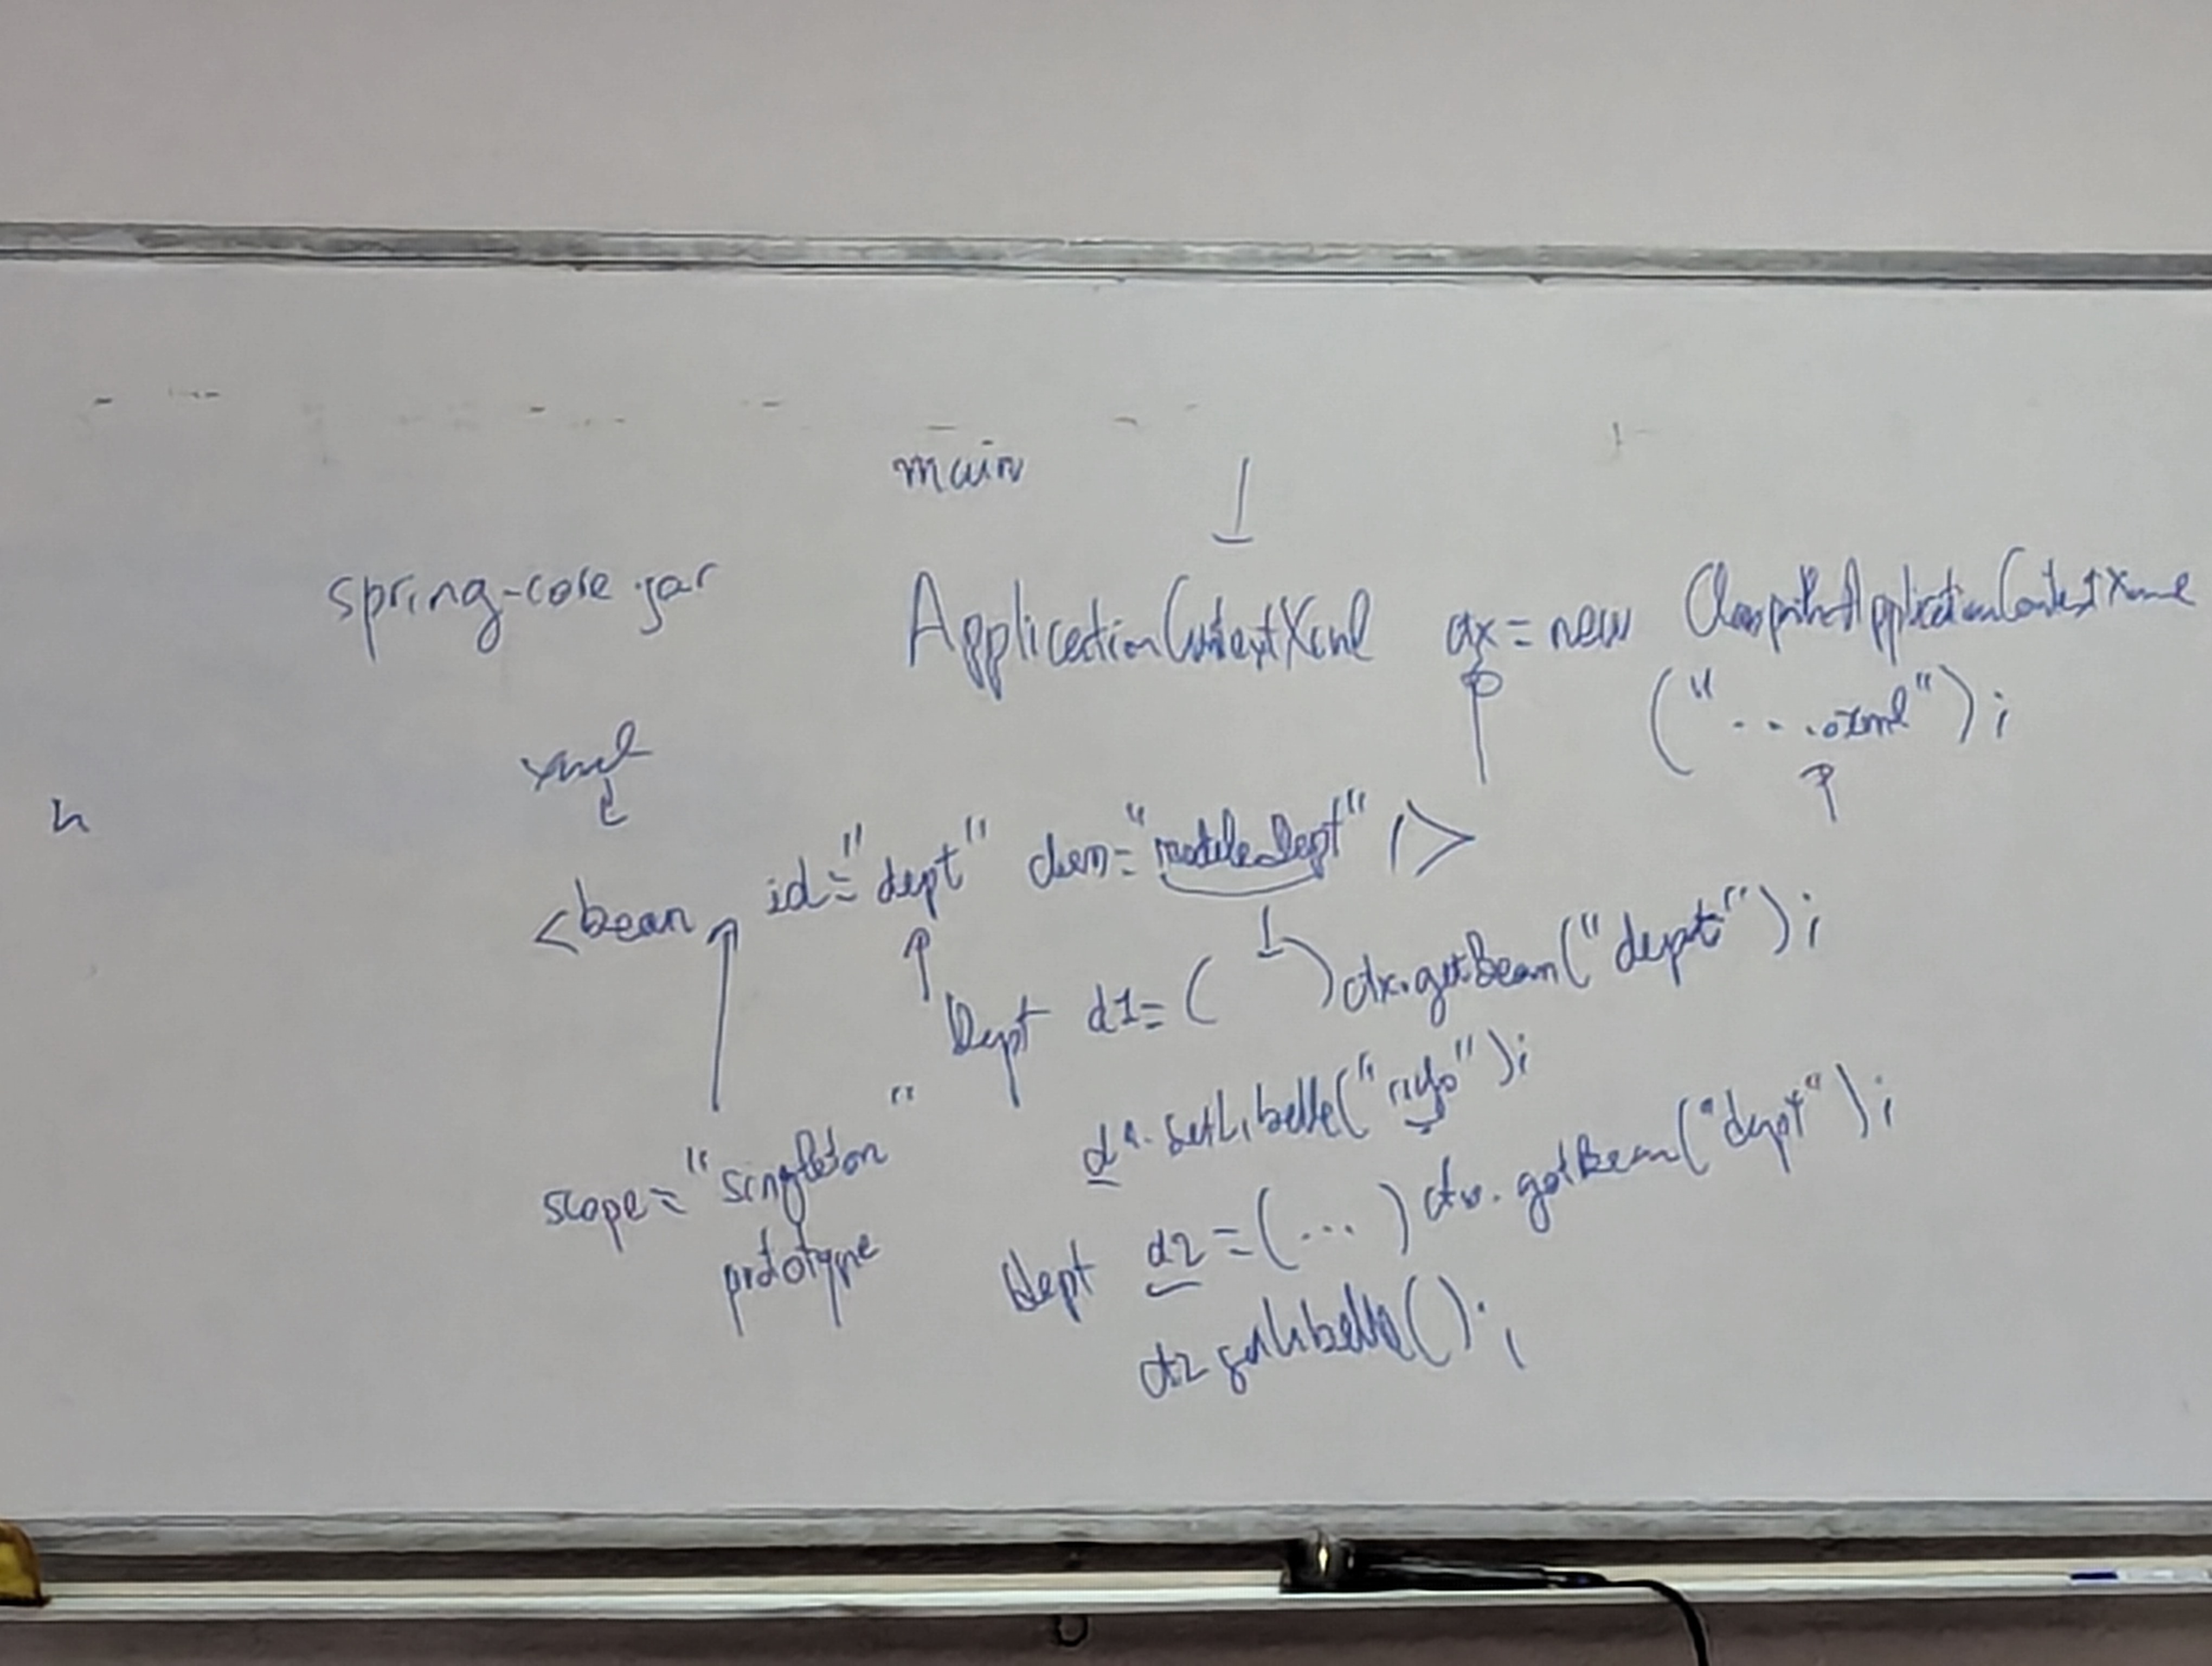 main
spring-core.jar
ApplicationContextXml ctx = new ClasspathApplicationContextXml
("....xml");
xml
<bean id="dept" class="modele.Dept" />
Dept d1 = ( ) ctx.getBean("dept");
.setLibelle("info");
scope="singleton"
prototype
Dept d2 = (...) ctx.getBean("dept");
d2.getLibelle();